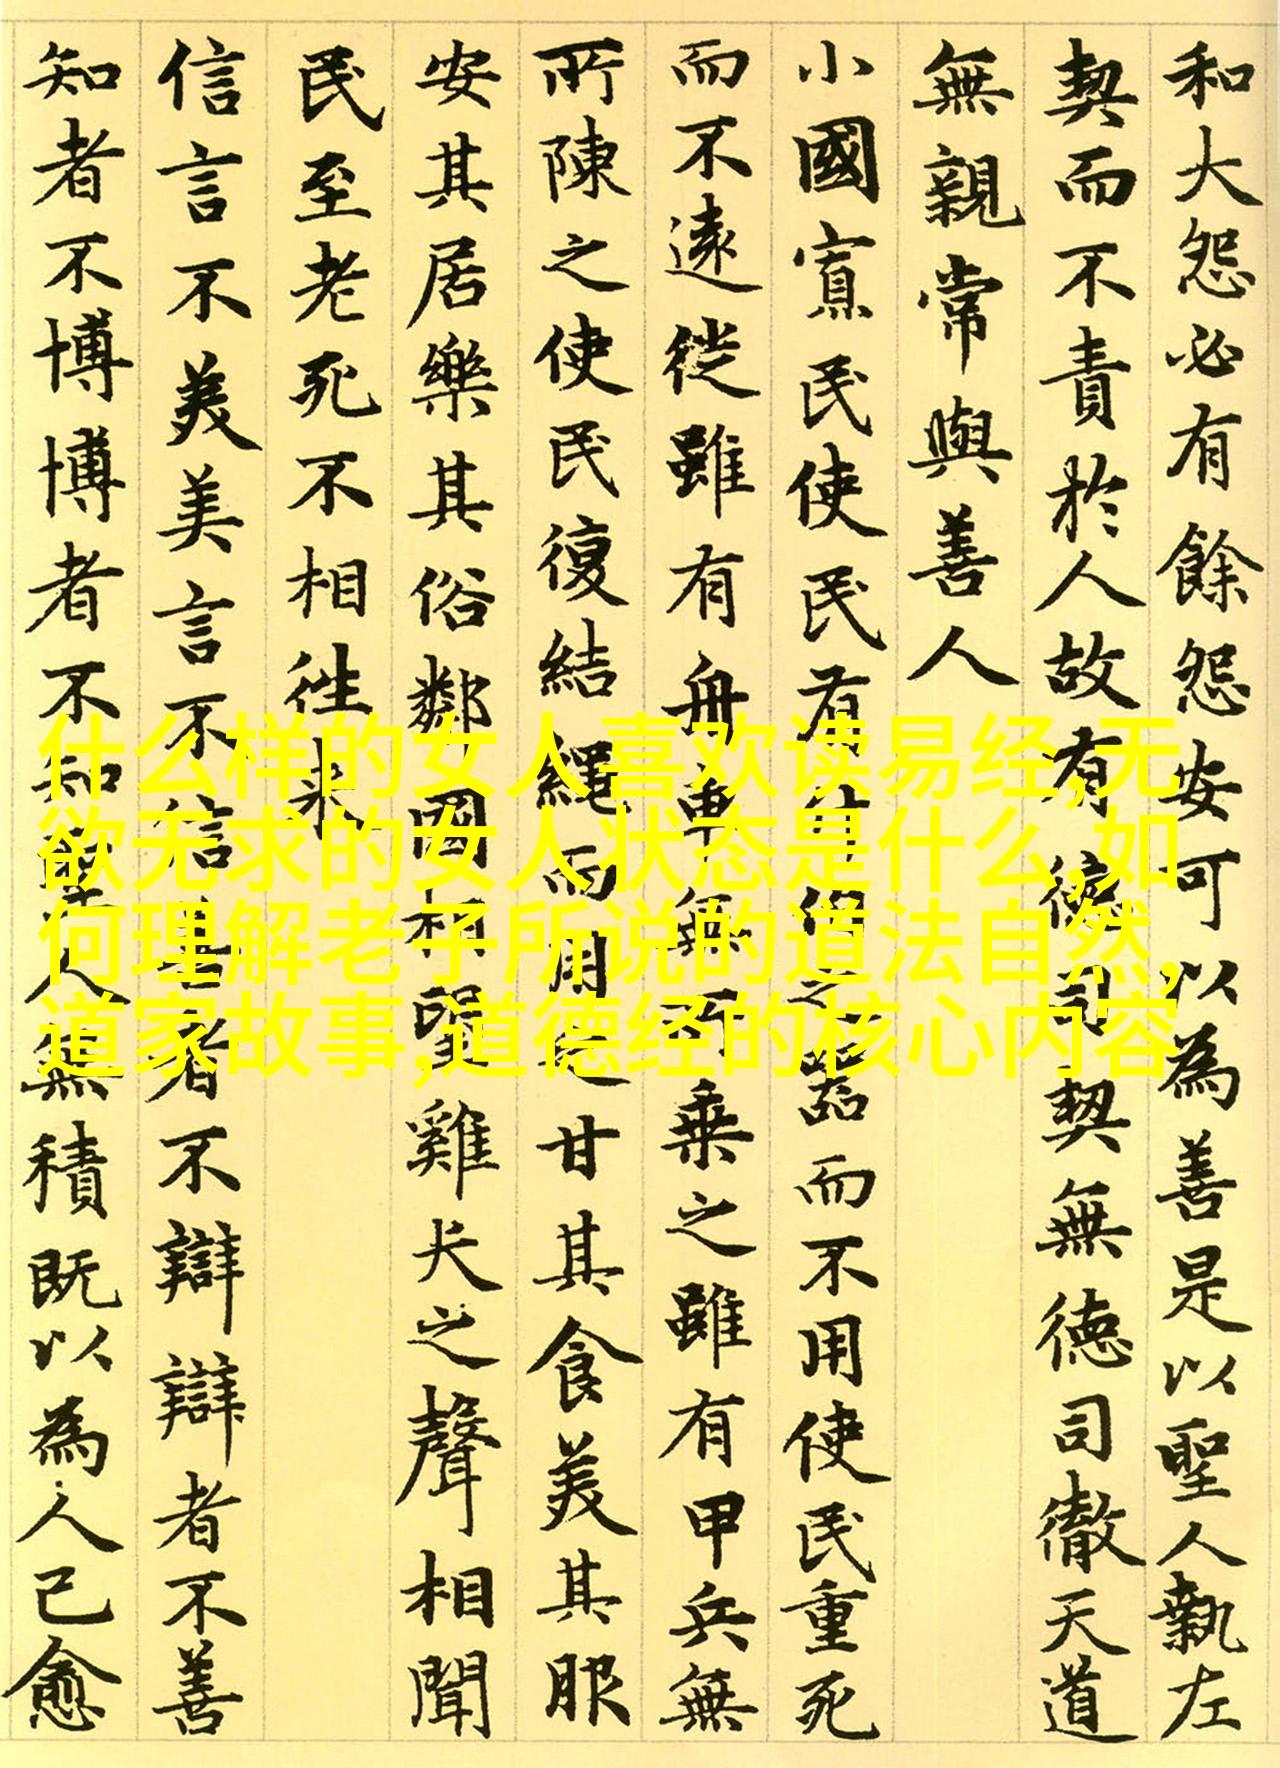 和大怨必有餘怨安可以為善是以聖人執左
契而不責於人故有德司契無德司徹天道
無親常與善人
小國寡民使民有什伯之器而不用使民重死
而不遠徙雖有舟車無所乘之雖有甲兵無
所陳之使民復結繩而用之甘其食美其服
安其居樂其俗鄰國相望雞犬之聲相聞
民至老死不相往來
信言不美美言不信善者不辯辯者不善
知者不博博者不知聖人無積既以為人己愈
什么样的女人喜欢读易经,无
欲无求的女人状态是什么,如
何理解老子所说的道法自然,
道家故事,道德经的核心内容